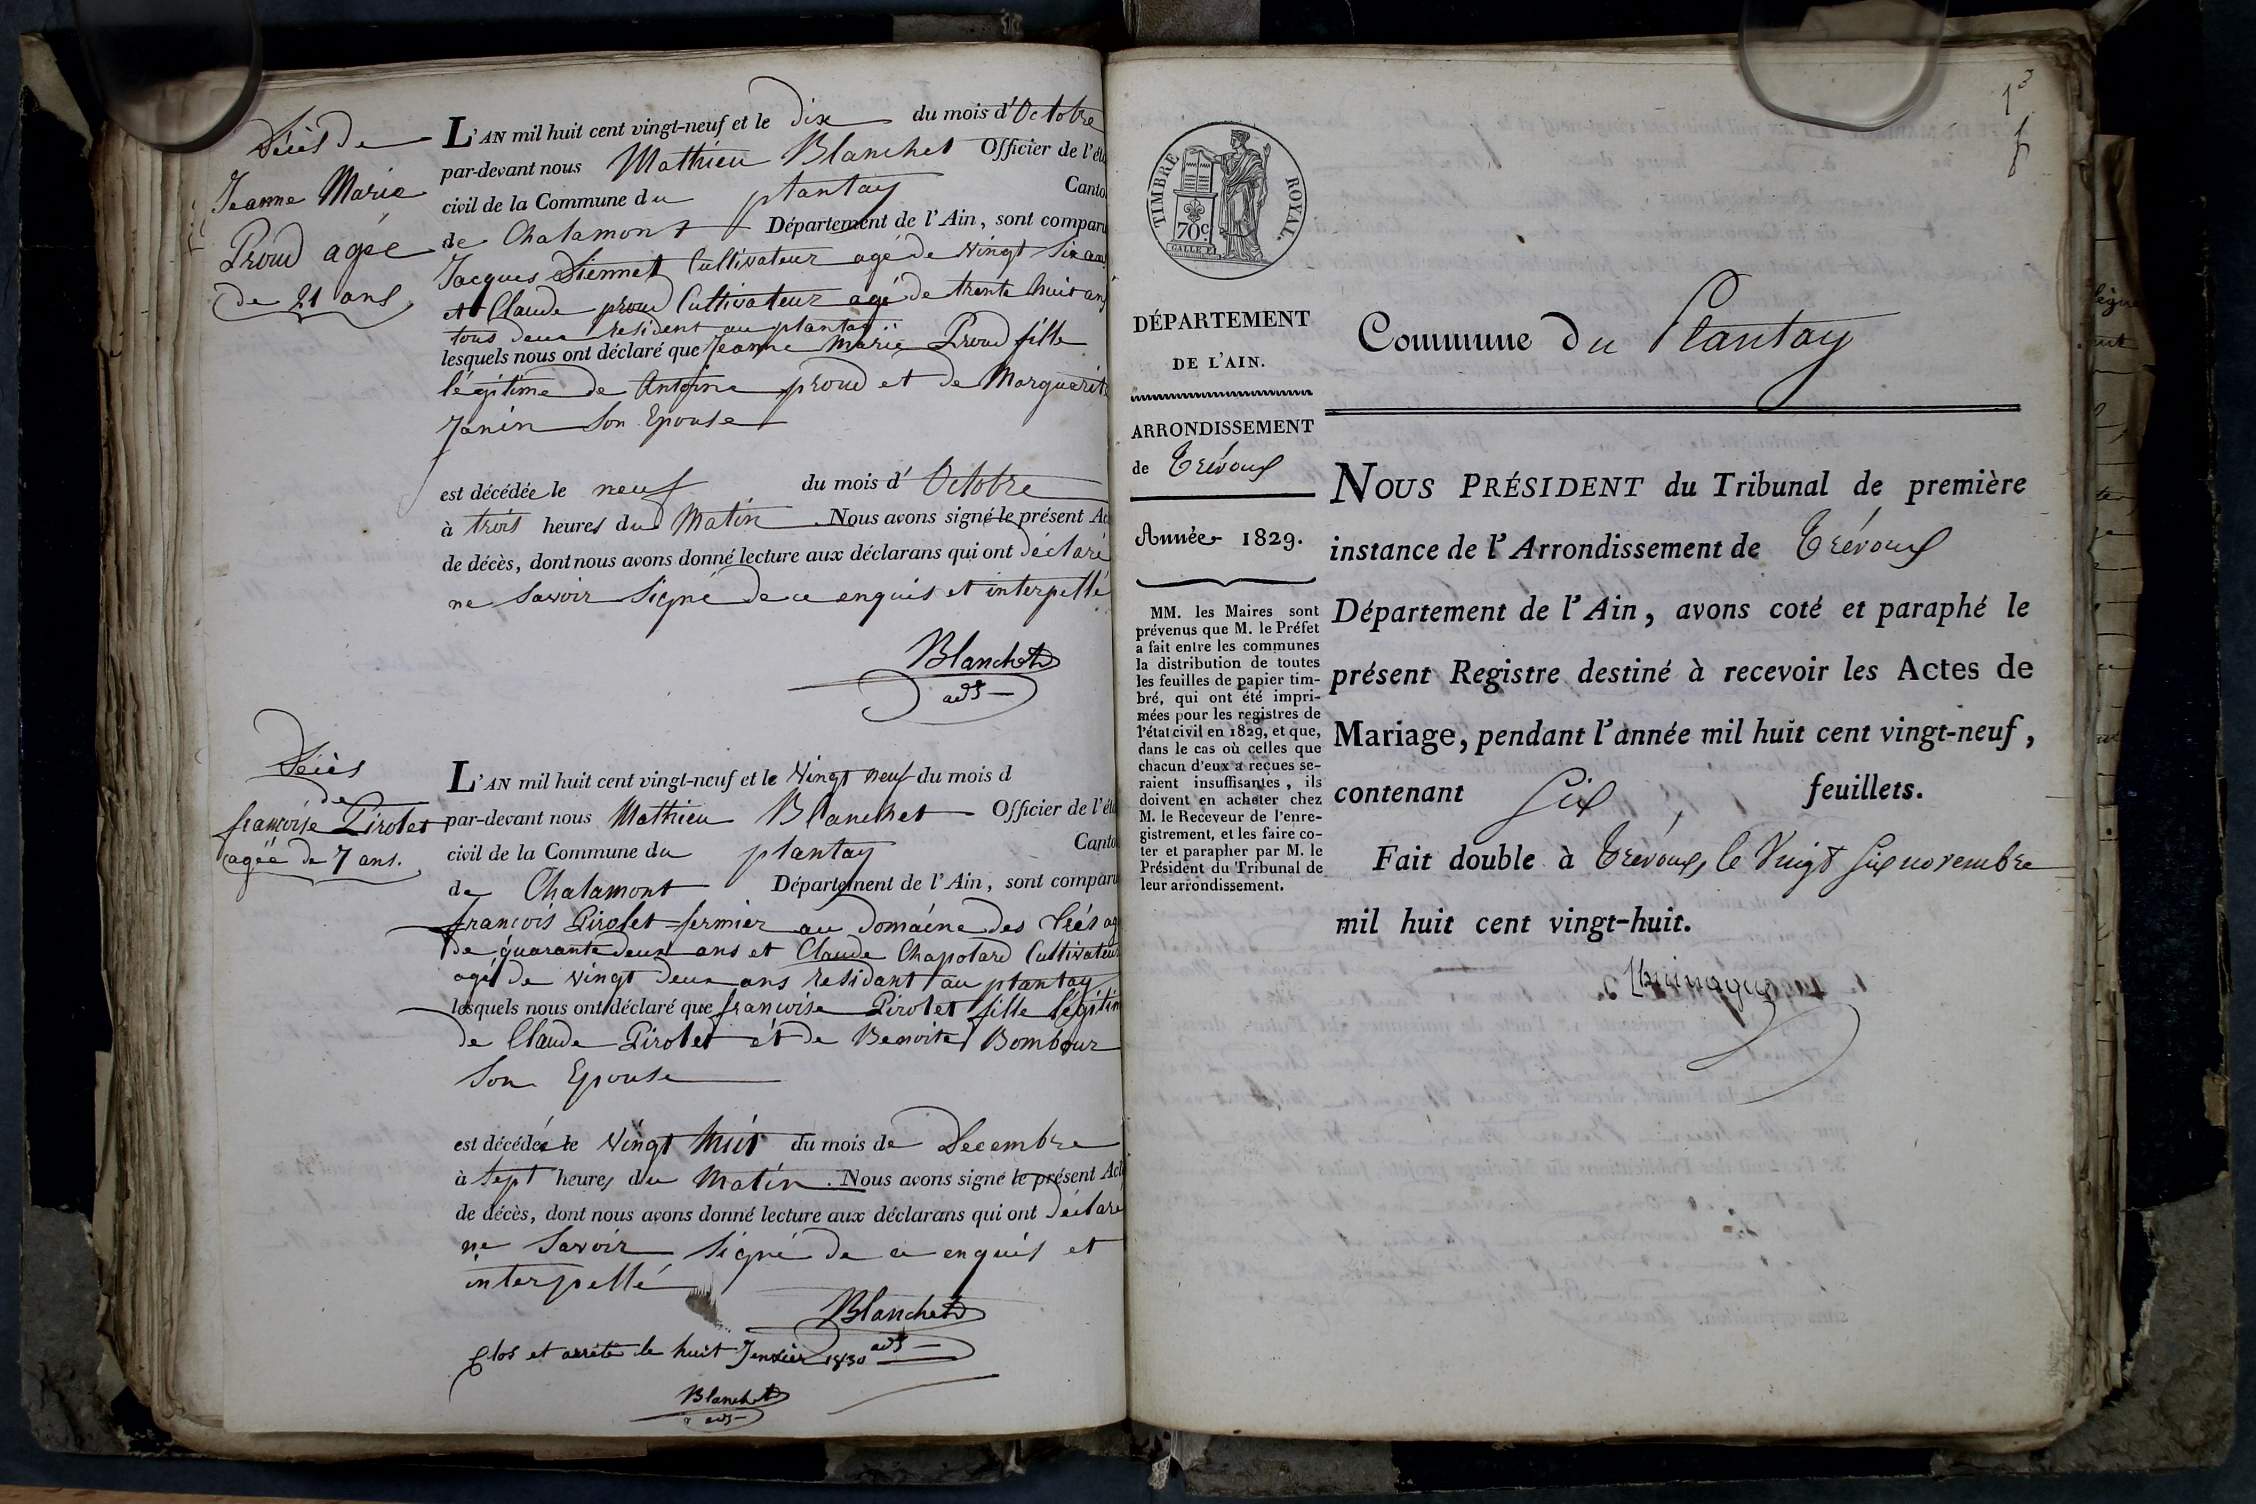 Décès de
Jeanne Marie
Proud agée
de 21 ans
L'AN mil huit cent vingt-neuf et le dix du mois d'Octobre
par-devant nous Mathieu Blanchet Officier de l'éta
civil de la Commune du plantay Canto
de Chalamont Département de l'Ain, sont comparu
Jacques Cultivateur agé de vingt six ans
et Claude proud Cultivateur agé de trente huit ans
tous deux resident au plantay
lesquels nous ont déclaré que Jeanne Marie Proud fille
légitime de Antoine proud et de Marguerite
Janin Son Epouse
est décédée le neuf du mois d'Octobre
à trois heures du Matin. Nous avons signé le présent Ac
de décès, dont nous avons donné lecture aux déclarans qui ont déclaré
ne Savoir Signé de ce enquis et interpellé
Blanchet
adt
Décès
de
françoise Pirolet
agée de 7 ans.
L'AN mil huit cent vingt-neuf et le Vingt neuf du mois d
par-devant nous Mathieu Blanchet Officier de l'éta
civil de la Commune du plantay Canto
de Chalamont Département de l'Ain, sont comparu
françois Pirolet fermier au Domaine des ag
de quarante deux ans et Claude Chapotard Cultivateur
agé de vingt deux ans residant au plantay
lesquels nous ont déclaré que françoise Pirolet fille légitim
de Claude Pirolet et de Benoite Bombour
Son Epouse
est décédée le Vingt huit du mois de Decembre
à Sept heures du Matin. Nous avons signé le présent Act
de décès, dont nous avons donné lecture aux déclarans qui ont déclaré
ne Savoir Signé de ce enquis et
interpellé
Blanchet
adt
Clos et arrété le huit Janvier 1830
Blanchet
adt
TIMBRE ROYAL.
70c.
DÉPARTEMENT
DE L'AIN.
ARRONDISSEMENT
de Trévoux
Année 1829.
MM. les Maires sont
prévenus que M. le Préfet
a fait entre les communes
la distribution de toutes
les feuilles de papier tim-
bré, qui ont été impri-
mées pour les registres de
l'état civil en 1829, et que,
dans le cas où celles que
chacun d'eux a reçues se-
raient insuffisantes, ils
doivent en acheter chez
M. le Receveur de l'enre-
gistrement, et les faire co-
ter et parapher par M. le
Président du Tribunal de
leur arrondissement.
Commune du Plantay
NOUS PRÉSIDENT du Tribunal de première
instance de l'Arrondissement de Trévoux
Département de l'Ain, avons coté et paraphé le
présent Registre destiné à recevoir les Actes de
Mariage, pendant l'année mil huit cent vingt-neuf,
contenant Six feuillets.
Fait double à Trévoux, le Vingt Six novembre
mil huit cent vingt-huit.